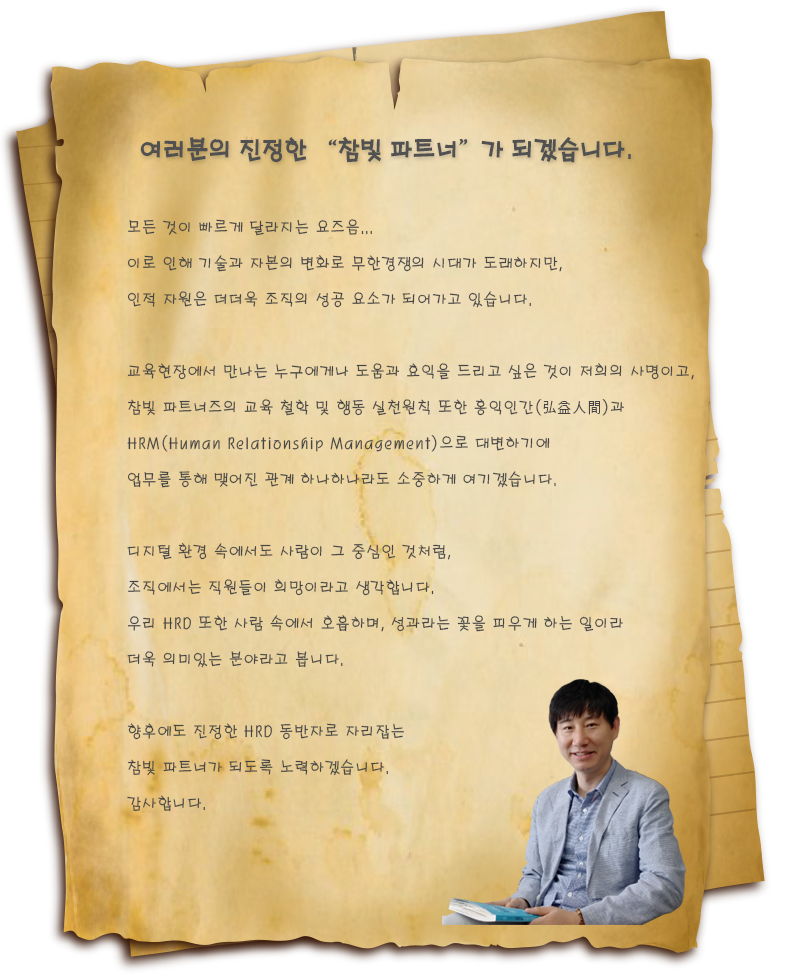 여러분의 진정한 “참빛 파트너”가 되겠습니다.
모든 것이 빠르게 달라지는 요즈음...
이로 인해 기술과 자본의 변화로 무한경쟁의 시대가 도래하지만,
인적 자원은 더더욱 조직의 성공 요소가 되어가고 있습니다.
교육현장에서 만나는 누구에게나 도움과 효익을 드리고 싶은 것이 저희의 사명이고,
참빛 파트너즈의 교육 철학 및 행동 실천원칙 또한 홍익인간(弘益人間)과
HRM(Human Relationship Management)으로 대변하기에
업무를 통해 맺어진 관계 하나하나라도 소중하게 여기겠습니다.
디지털 환경 속에서도 사람이 그 중심인 것처럼,
조직에서는 직원들이 희망이라고 생각합니다.
우리 HRD 또한 사람 속에서 호흡하며, 성과라는 꽃을 피우게 하는 일이라
더욱 의미있는 분야라고 봅니다.
향후에도 진정한 HRD 동반자로 자리잡는
참빛 파트너가 되도록 노력하겠습니다.
감사합니다.